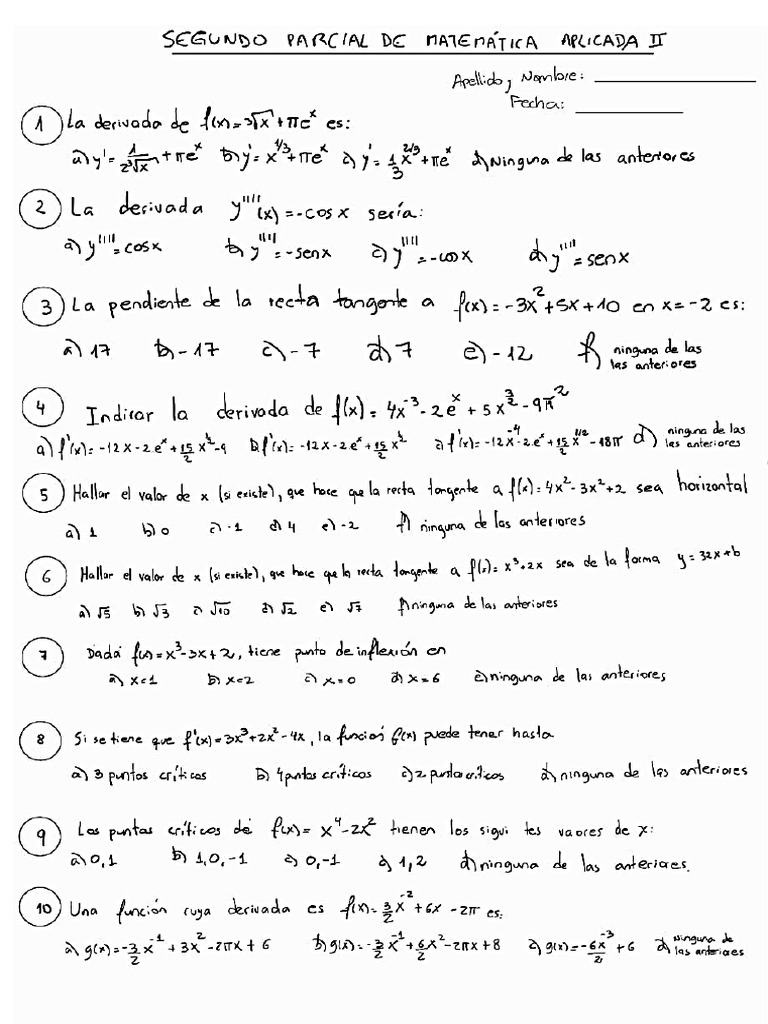 SEGUNDO PARCIAL DE MATEMÁTICA APLICADA II
Apellido y Nombre:
Fecha:
1 La derivada de f(x)=3√x+πe^x es:
a) y'=1/(2³√x)+πe^x b) y'=x^(1/3)+πe^x c) y'=1/3 x^(2/3)+πe^x d) Ninguna de las anteriores
2 La derivada y''''(x)=-cosx sería:
a) y'''''=cosx b) y'''''=-senx c) y'''''=-cosx d) y'''''=senx
3 La pendiente de la recta tangente a f(x)=-3x²+5x+10 en x=-2 es:
a) 17 b) -17 c) -7 d) 7 e) -12 f) ninguna de las
las anteriores
4 Indicar la derivada de f(x)=4x^-3-2e^x+5x^(3/2)-9π²
a) f'(x)=-12x-2e^x+15/2 x^½-9 b) f'(x)=-12x-2e^x+15/2 x^½ c) f'(x)=-12x^-4-2e^x+15/2 x^(1/2)-18π d) ninguna de las
las anteriores
5 Hallar el valor de x (si existe), que hace que la recta tangente a f(x)=4x²-3x²+2 sea horizontal
a) 1 b) 0 c) -1 d) 4 e) -2 f) ninguna de las anteriores
6 Hallar el valor de x (si existe), que hace que la recta tangente a f(x)=x³+2x sea de la forma y=32x+b
a) √5 b) √3 c) √10 d) √2 e) √7 f) ninguna de las anteriores
7 Dada f(x)=x³-3x+2, tiene punto de inflexión en
a) x=1 b) x=2 c) x=0 d) x=6 e) ninguna de las anteriores
8 Si se tiene que f'(x)=3x³+2x²-4x, la función f(x) puede tener hasta
a) 3 puntos críticos b) 4 puntos críticos c) 2 punto críticos d) ninguna de las anteriores
9 Los puntos críticos de f(x)=x⁴-2x² tienen los sigui tes vaores de x:
a) 0,1 b) 1,0,-1 c) 0,-1 d) 1,2 d) ninguna de las anteriores.
10 Una función cuya derivada es f(x)=3/2 x^-2+6x-2π es:
a) g(x)=-3/2 x^-1+3x²-2πx+6 b) g(x)=-3/2 x^-1+6/2 x²-2πx+8 c) g(x)=-6x^-3/2+6 d) Ninguna de
las anteriores